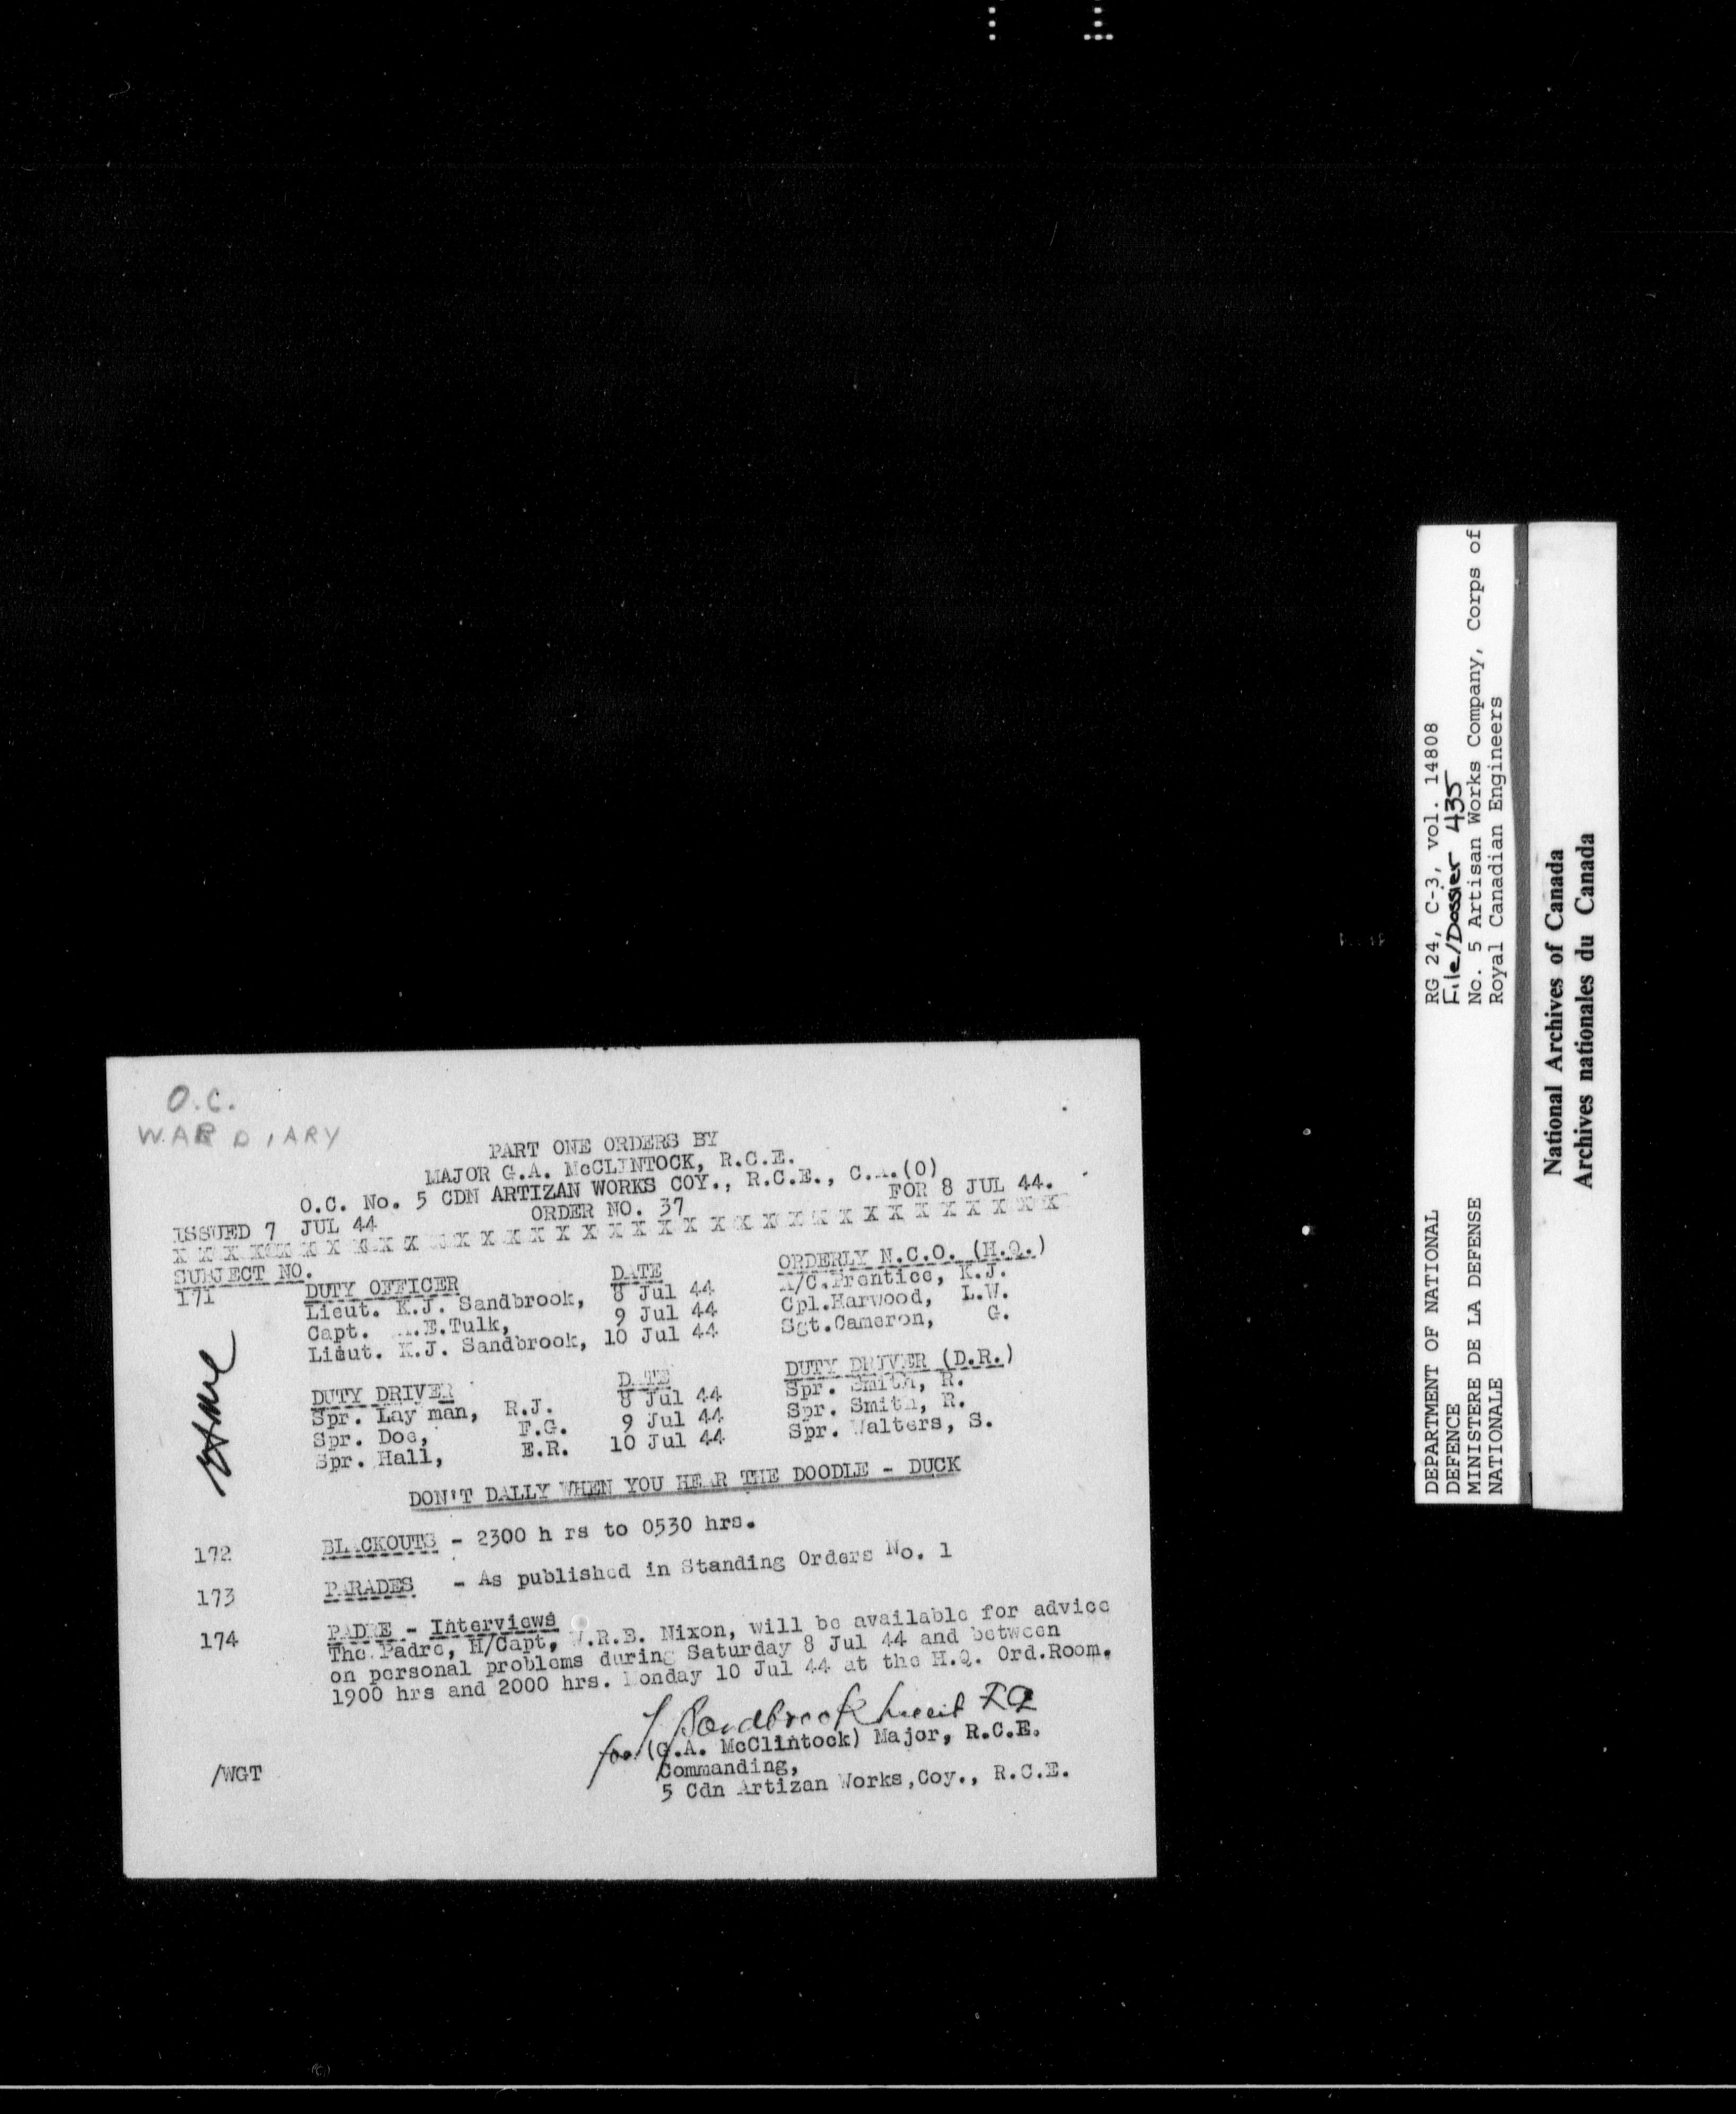 O.C.
WAR DIARY
PART ONE ORDERS BY
MAJOR G.A. McCLINTOCK, R.C.E.
O.C. No. 5 CDN ARTIZAN WORKS COY., R.C.E., C.A.(O)
ISSUED 7 JUL 44 ORDER NO. 37 FOR 8 JUL 44.
X X X X X X X X X X X X X X X X X X X X X X X X X X X X X X X X X X X
SUBJECT NO.
171 DUTY OFFICER DATE ORDERLY N.C.O. (H.Q.)
Lieut. K.J. Sandbrook, 8 Jul 44 A/C.Prentice, K.J.
Capt. .E.Tulk, 9 Jul 44 Cpl.Harwood, L.W.
Lieut. K.J. Sandbrook, 10 Jul 44 Sgt.Cameron, G.
DUTY DRIVER DATE DUTY DRIVER (D.R.)
Spr. Lay man, R.J. 8 Jul 44 Spr. Smith, R.
Spr. Doe, F.G. 9 Jul 44 Spr. Smith, R.
Spr. Hall, E.R. 10 Jul 44 Spr. Walters, S.
DON'T DALLY WHEN YOU HEAR THE DOODLE - DUCK
172 BLACKOUTS - 2300 h rs to 0530 hrs.
173 PARADES - As published in Standing Orders No. 1
174 PADRE - Interviews
The Padre, H/Capt, W.R.E. Nixon, will be available for advice
on personal problems during Saturday 8 Jul 44 and between
1900 hrs and 2000 hrs. Monday 10 Jul 44 at the H.Q. Ord.Room.
Sandbrook Lieut
for (G.A. McClintock) Major, R.C.E.
Commanding,
/WGT 5 Cdn Artizan Works,Coy., R.C.E.
RG 24, C-3, vol. 14808
File/Dossier 435
No. 5 Artisan Works Company, Corps of
Royal Canadian Engineers
DEPARTMENT OF NATIONAL
DEFENCE
MINISTERE DE LA DEFENSE
NATIONALE
National Archives of Canada
Archives nationales du Canada